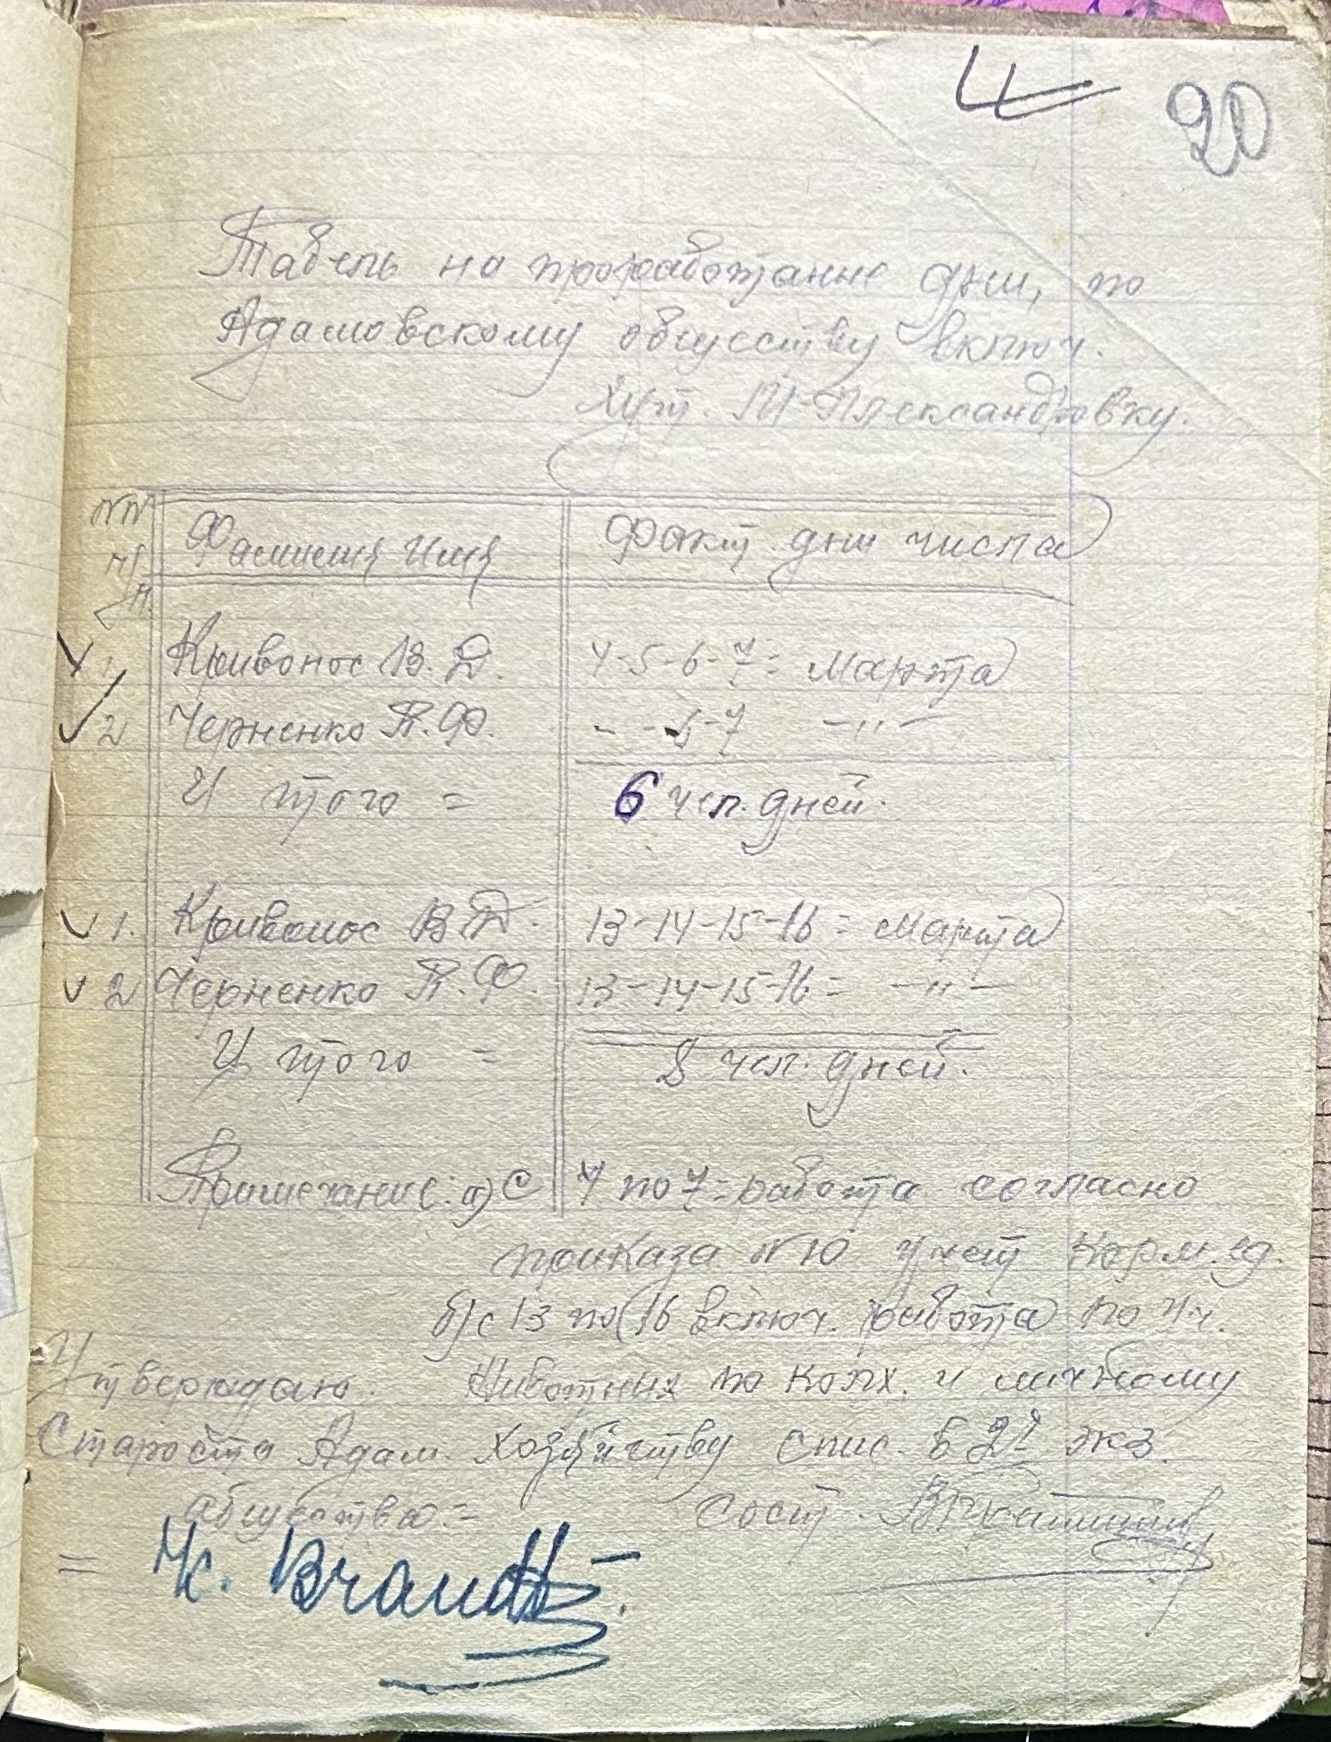 4 20
Табель на проработание дни, по
Адамовскому обчесству включ.
Хут. М-Александровку.
NN п/п. Фамилия Имя Факт. дни числа
1 Кривонос В. Д. 4-5-6-7 = Марта
2 Черненко П. Ф. - - -6-7 -"-
И того = 6 чел. дней.
1. Кривонос В. Д. 13-14-15-16 = Марта
2 Черненко П. Ф. 13-14-15-16 = -"-
И того = 8 чел. дней.
Примечание: а) С 4 по 7 = работа согласно
приказа N 10 учет Корм. ед.
б) с 13 по 16 включ. работа по уч.
Утверждаю. Животных по колх. и личному
Староста Адам. Хозяйству спис. в 2х экз.
общества = Сост.
= Brandt.